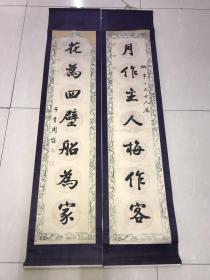 月作主人梅作客
花為四壁船為家